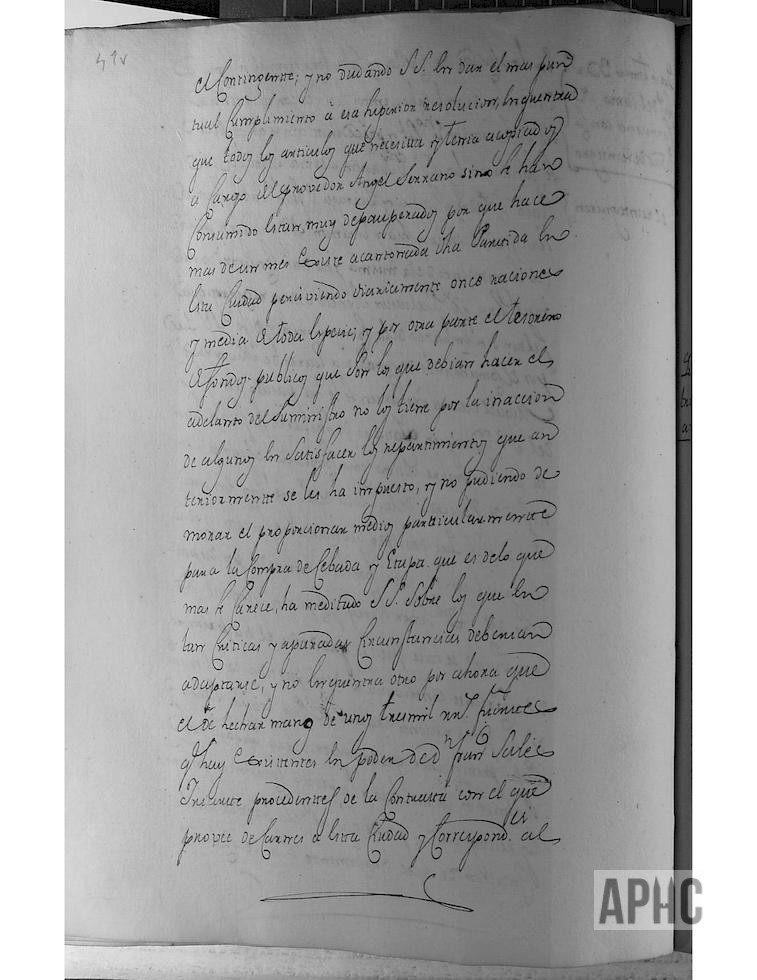 41v
el Contingente; y no dudando S.S. en dar el mas pun
tual Cumplimiento á esa Superior resolucion, encuentra
que todos los articulos que necesita y tenia acopiados
a Cargo del provedor Angel Serrano sino se han
Consumido estan muy depauperados por que hace
mas de un mes Existe acantonada dha Partida en
esta Ciudad perciviendo diariamente once raciones
y media de toda especie; y por otra parte el tesorero
de fondos publicos que son los que debian hacer el
adelanto del Suministro no los tiene por la inaccion
de algunos en Satisfacer los repartimientos que an
teriormente se les ha impuesto, y no pudiendo de
morar el proporcionar medios particularmente
para la Compra de Cebada y Etapa que es de lo que
mas se Carece, ha meditado S.S. Sobre los que en
tan Criticas y apuradas Circunstancias deberian
adaptarse, y no encuentra otro por ahora que
el de hechar mano de unos tres mil rrs.
q hay Existentes en poder de D. Fran
procedentes de la Contrata con el que
provee de Carnes a esta Ciudad y Correspond. al
APHC